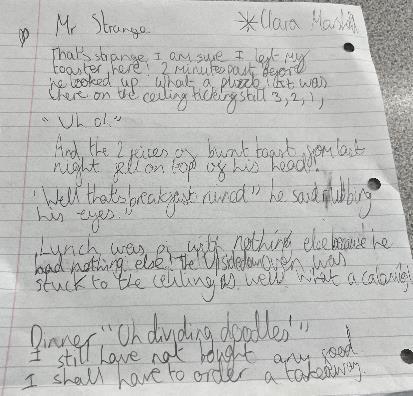 Mr Strange
Clara Marshall
That's strange I am sure I left my
toaster here! 2 minutes past before
he looked up what a puzzle it was
there on the ceiling ticking still 3, 2, 1,
"Uh oh"
And the 2 pieces of burnt toast from last
night fell on top of his head!
"Well that's breakfast ruined" he said rubbing
his eyes."
Lunch was pi with nothing else because he
had nothing else! The Upsidedown oven was
stuck to the ceiling as well what a calamity
Dinner "Oh dividing doodles!"
I still have not bought any food
I shall have to order a takeaway.